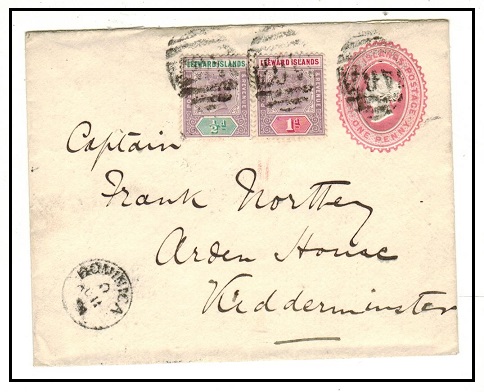 LEEWARD ISLANDS
LEEWARD ISLANDS
½d
1d
POSTAGE
ONE PENNY
Captain
Frank Northey
Arden House
Kidderminster
DOMINICA